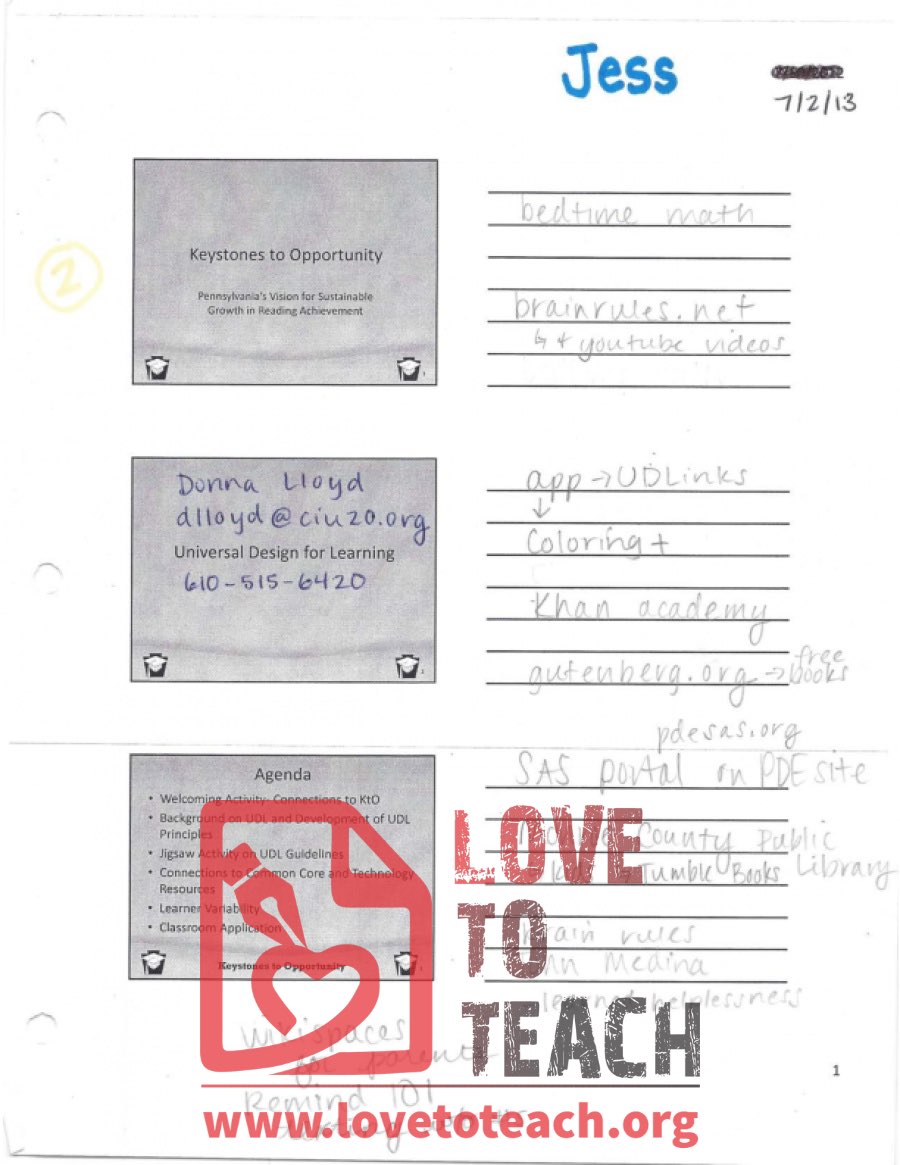 Jess
7/2/13
2
Keystones to Opportunity
Pennsylvania's Vision for Sustainable
Growth in Reading Achievement
1
bedtime math
brainrules.net
↳ + youtube videos
Donna Lloyd
dlloyd@ciu20.org
Universal Design for Learning
610-515-6420
2
app → UDLinks
↓
Coloring +
Khan academy
free
gutenberg.org → books
pdesas.org
SAS portal on PDE site
County Public
Library
→ Tumble Books
brain rules
Medina
learned helplessness
Agenda
• Welcoming Activity- Connections to KtO
• Background on UDL and Development of UDL
Principles
• Jigsaw Activity on UDL Guidelines
• Connections to Common Core and Technology
Resources
• Learner Variability
• Classroom Application
Keystones to Opportunity
Wikispaces
for parents
Remind 101
texting
LOVE
TO
TEACH
www.lovetoteach.org
1